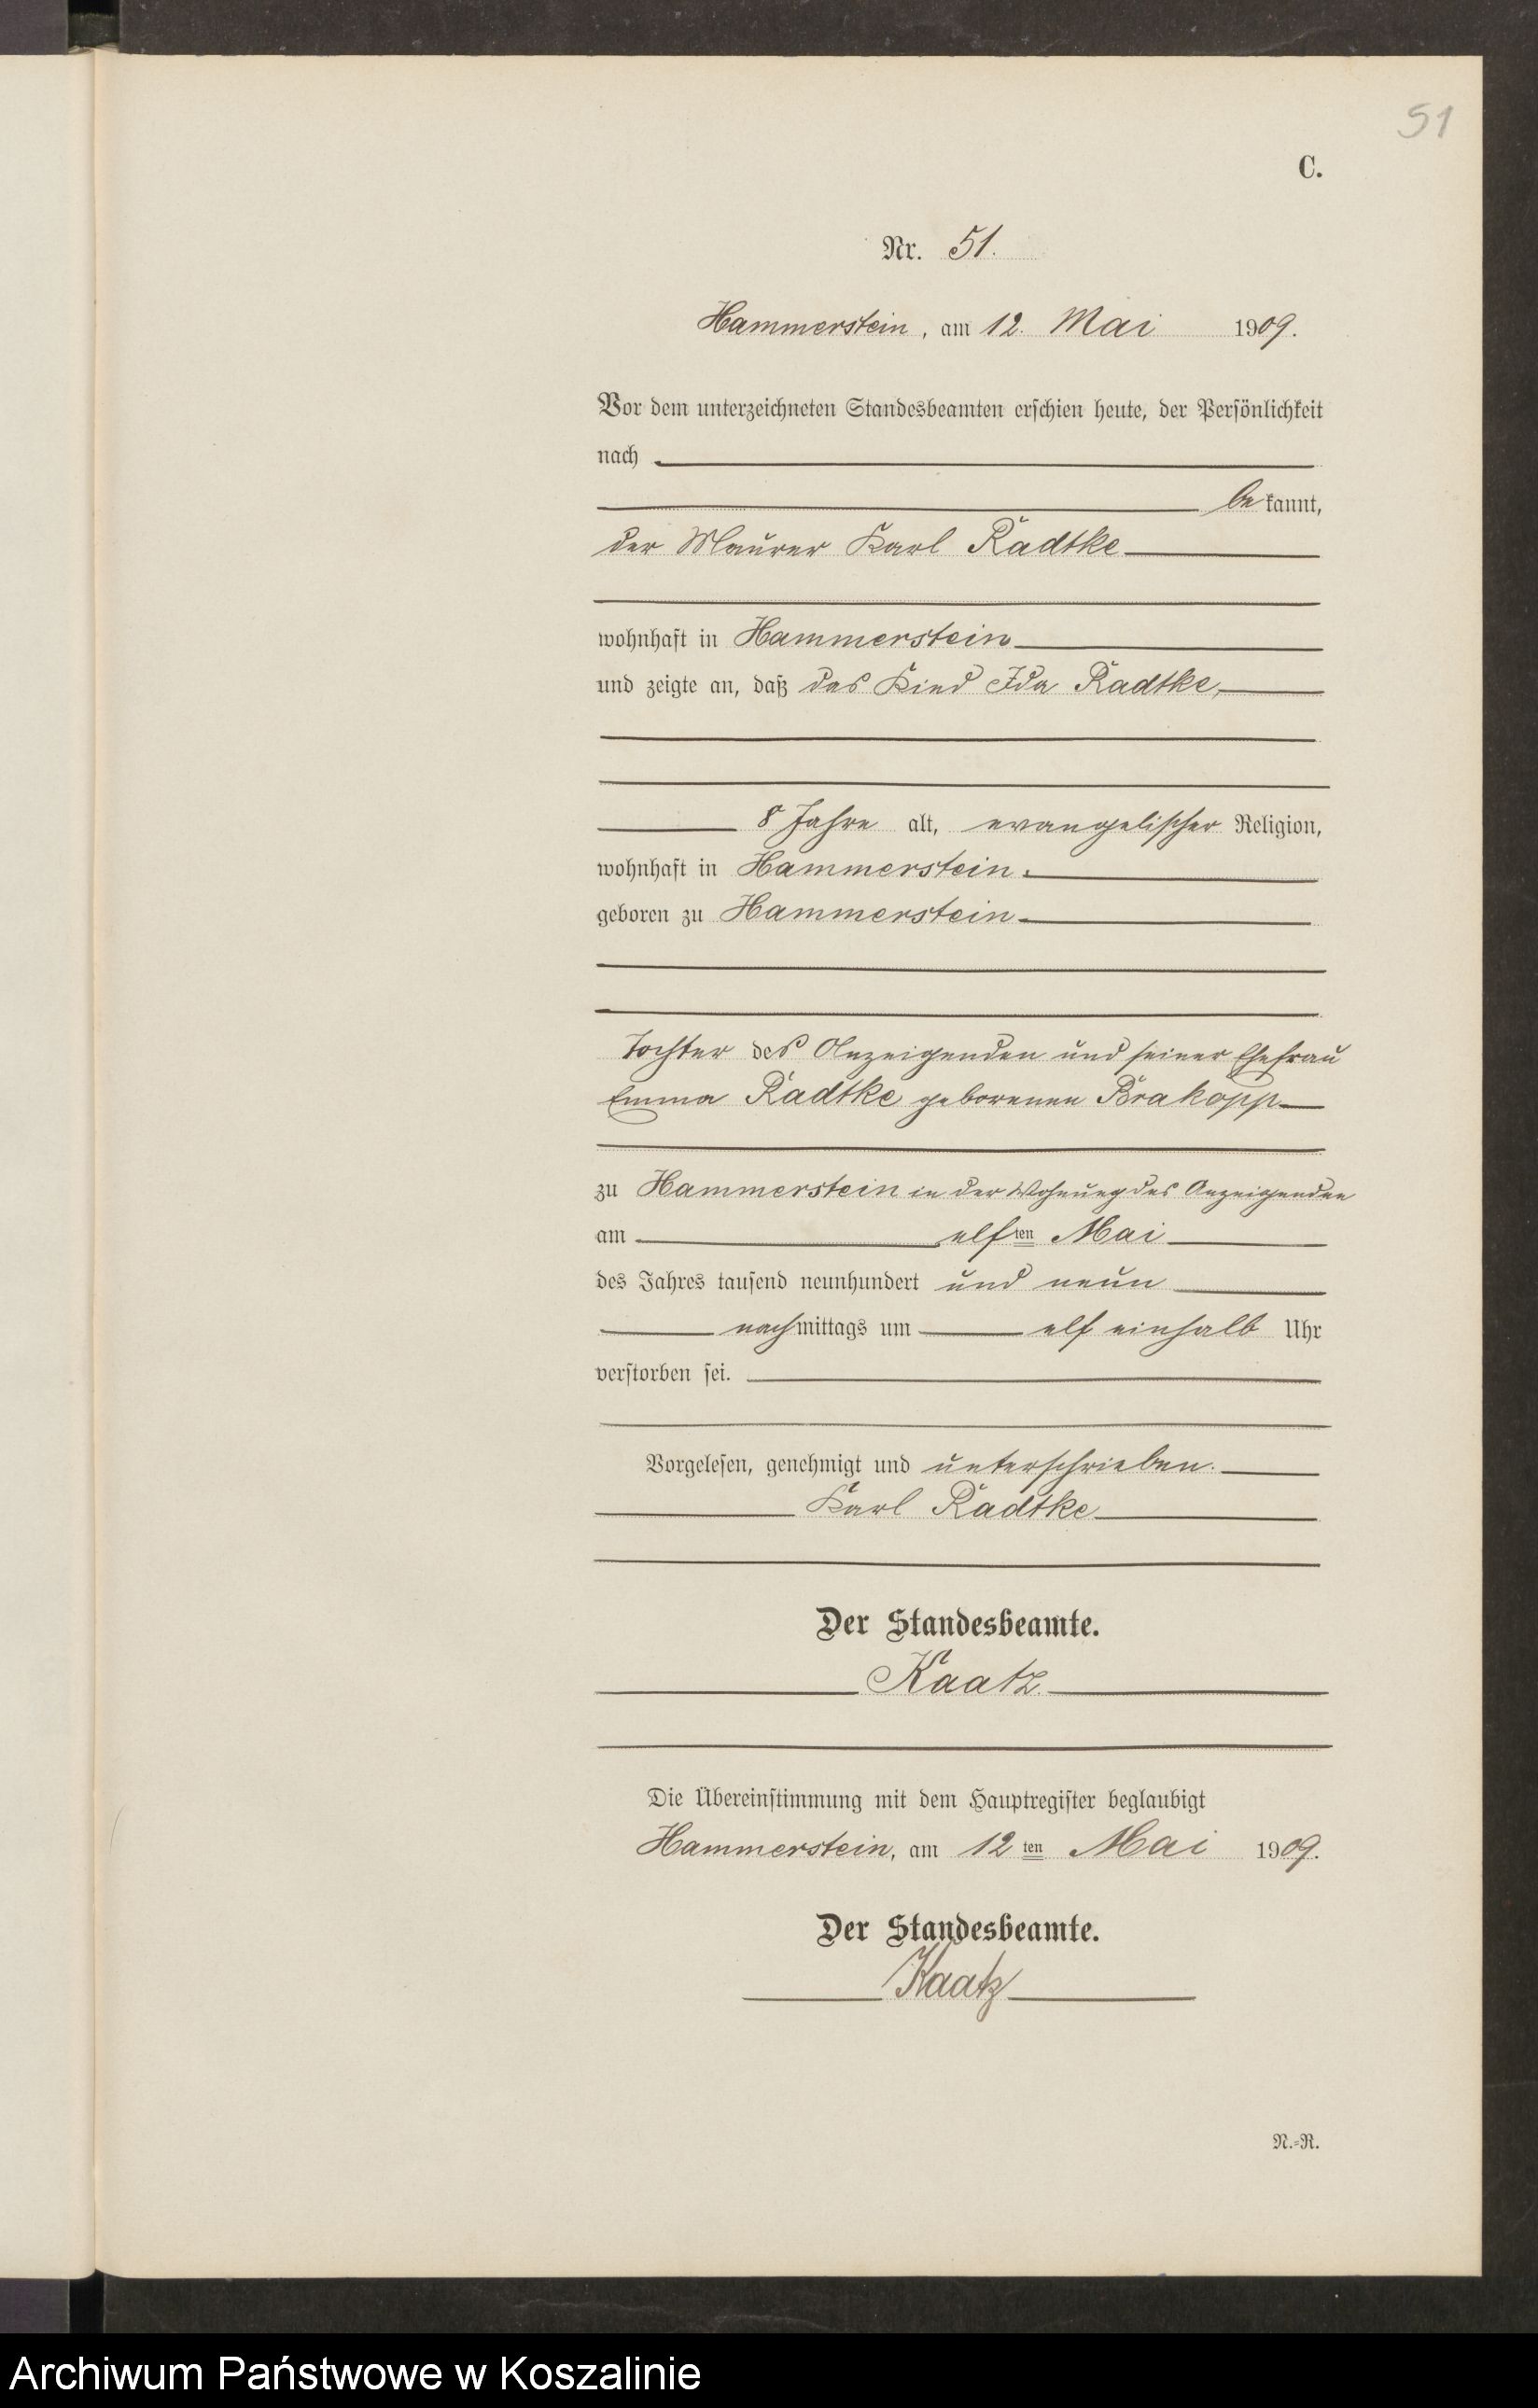 51
C.
Nr. 51.
Hammerstein, am 12. Mai 1909.
Vor dem unterzeichneten Standesbeamten erschien heute, der Persönlichkeit
nach
bekannt,
der Maurer Karl Radtke
wohnhaft in Hammerstein
und zeigte an, daß das Kind Ida Radtke,
8 Jahre alt, evangelischer Religion,
wohnhaft in Hammerstein
geboren zu Hammerstein
Tochter des Anzeigenden und seiner Ehefrau
Emma Radtke geborenen Brakopp
zu Hammerstein in der Wohnung des Anzeigenden
am elften Mai
des Jahres tausend neunhundert und neun
nachmittags um elf einhalb Uhr
verstorben sei.
Vorgelesen, genehmigt und unterschrieben.
Karl Radtke
Der Standesbeamte.
Kaatz.
Die Übereinstimmung mit dem Hauptregister beglaubigt
Hammerstein, am 12ten Mai 1909.
Der Standesbeamte.
Kaatz
N.=R.
Archiwum Państwowe w Koszalinie